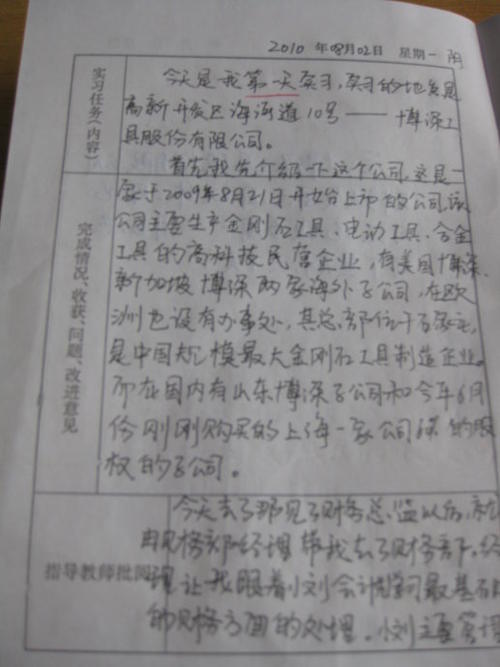 2010 年08月02日 星期一 阴
实习任务(内容)
今天是我第一天实习,实习的地点是
高新开发区海河道10号——博深工
具股份有限公司。
首先我先介绍一下这个公司,这是一
家于2009年8月21日开始上市的公司,该
公司主要生产金刚石工具、电动工具、合金
工具的高科技民营企业,有美国博深、
新加坡博深两家海外子公司,在欧
洲也设有办事处,其总部位于石家庄,
是中国规模最大金刚石工具制造企业。
而在国内有山东博深子公司和今年6月
份刚刚购买的上海一家公司的股
权的子公司。
完成情况、收获、问题、改进意见
今天去了那见了财务总监以后,就
由财务部经理带我去了财务部,经
理让我跟着小刘会计学习最基础
的财务方面的处理。小刘主要管理
指导教师批阅